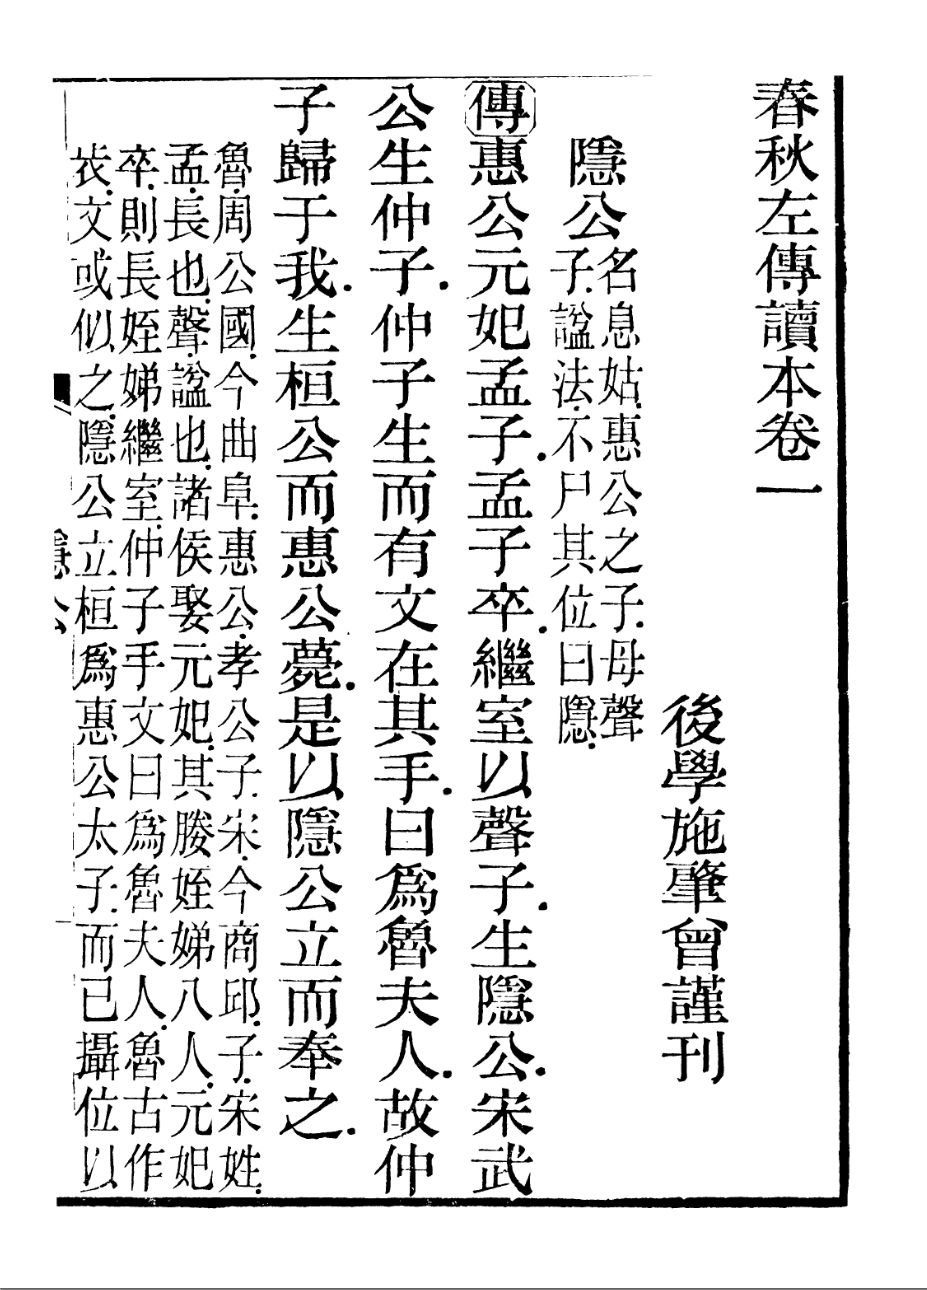 春秋左傳讀本卷一
後學施肇曾謹刊
隱公
名息姑.惠公之子.母聲
子.諡法.不尸其位曰隱.
傳惠公元妃孟子.孟子卒.繼室以聲子.生隱公.宋武
公生仲子.仲子生而有文在其手.曰爲魯夫人.故仲
子歸于我.生桓公而惠公薨.是以隱公立而奉之.
魯.周公國.今曲阜.惠公.孝公子.宋.今商邱.子.宋姓.
孟.長也.聲.諡也.諸侯娶元妃.其媵姪娣八人.元妃
卒.則長姪娣繼室.仲子手文曰爲魯夫人.魯古作
𣥐.文或似之.隱公立桓爲惠公太子.而已攝位以
隱公